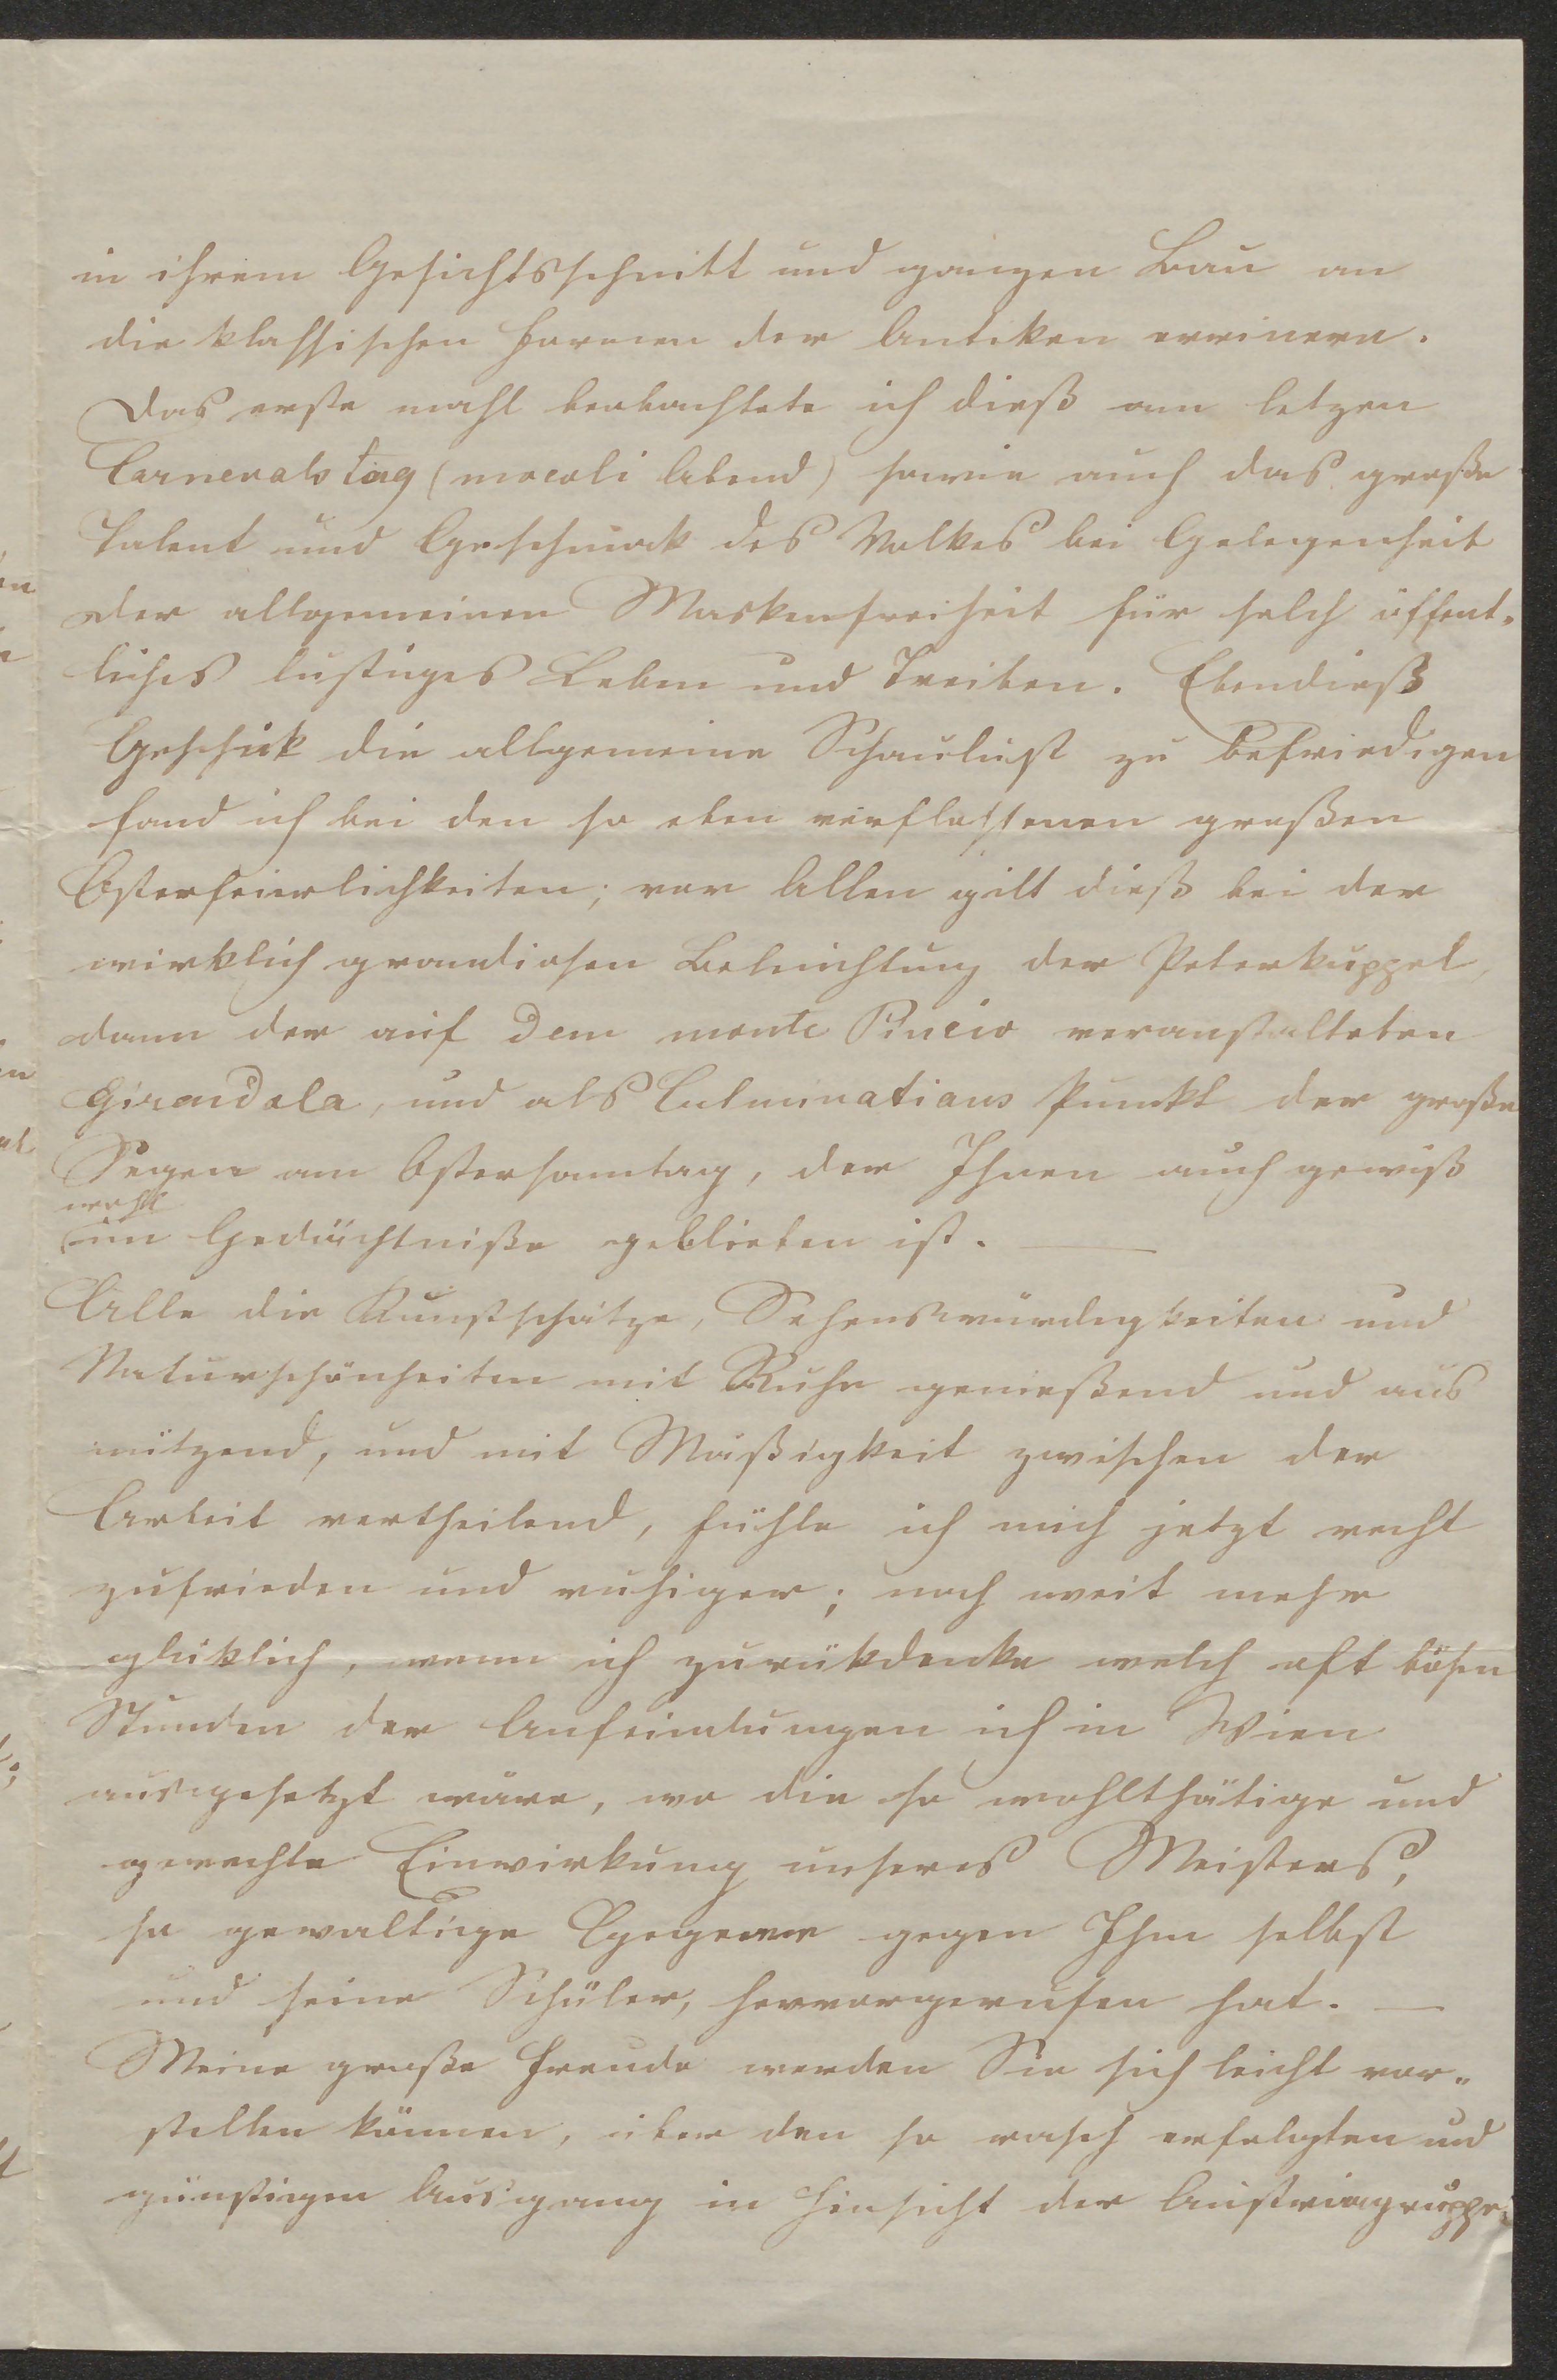 in ihrem Gesichtsschnitt und ganzen Bau an
die klassischen Formen der Antiken erinnern.
Das erste mahl beobachtete ich dieß am letzen
Carnevals tag (mocoli Abend) sowie auch das große
Talent und Geschmak des Volkes bei Gelegenheit
der allgemeinen Maskenfreiheit für solch öffent-
liches lustiges Leben und Treiben. Ebendieß
Geschik die allgemeine Schaulust zu befriedigen
fand ich bei den so eben verflossenen großen
Osterfeierlichkeiten; vor Allen gilt dieß bei der
wirklich grandiosen Beleuchtung der Peterkuppel,
dann der auf dem monte Pincio veranstalteten
Girandola, und als Culminations Punkt der große
Segen am Ostersonntag, der Ihnen auch gewiß
wohl
im Gedächtniße geblieben ist. —
Alle die Kunstschätze, Sehenswürdigkeiten und
Naturschönheiten mit Ruhe genießend und aus
nützend, und mit Mäßigkeit zwischen der
Arbeit vertheilend, fühle ich mich jetzt recht
zufrieden und ruhiger; noch weit mehr
glüklich, wenn ich zurükdenke welch oft bösen
Stunden der Anfeindungen ich in Wien
ausgesetzt wäre, wo die so wohlthätige und
gerechte Einwirkung unseres Meisters,
so gewaltige Gegener gegen Ihm selbst
und seine Schüler, hervorgerufen hat. —
Meine große Freude werden Sie sich leicht vor-
stellen können, über den so rasch erfolgten und
günstigen Ausgang in Hinsicht der Austriagruppe;